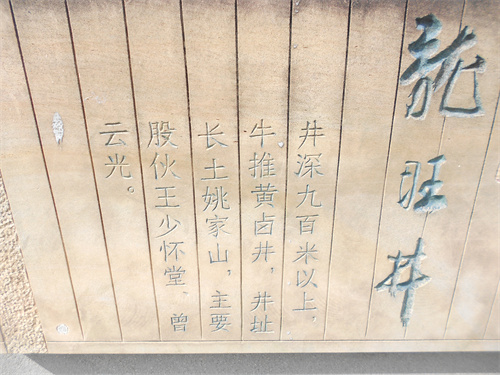 龍旺井
井深九百米以上，
牛推黄卤井，井址
长土姚家山，主要
股伙王少怀堂、曾
云光。